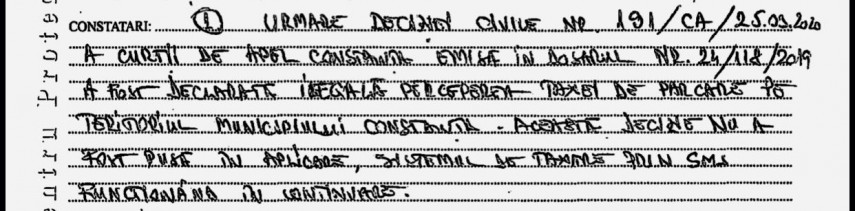 CONSTATARI: 1 URMARE DECIZIEI CIVILE NR. 191/CA/25.03.2020
A CURTII DE APEL CONSTANTA EMISE IN DOSARUL NR. 24/118/2019
A FOST DECLARATE ILEGALĂ PERCEPEREA TAXEI DE PARCARE PE
TERITORIUL MUNICIPIULUI CONSTANTA - ACEASTE DECIZIE NU A
FOST PUSE IN APLICARE, SISTEMUL DE TAXARE PRIN SMS
FUNCTIONÂND IN CONTINUARE.